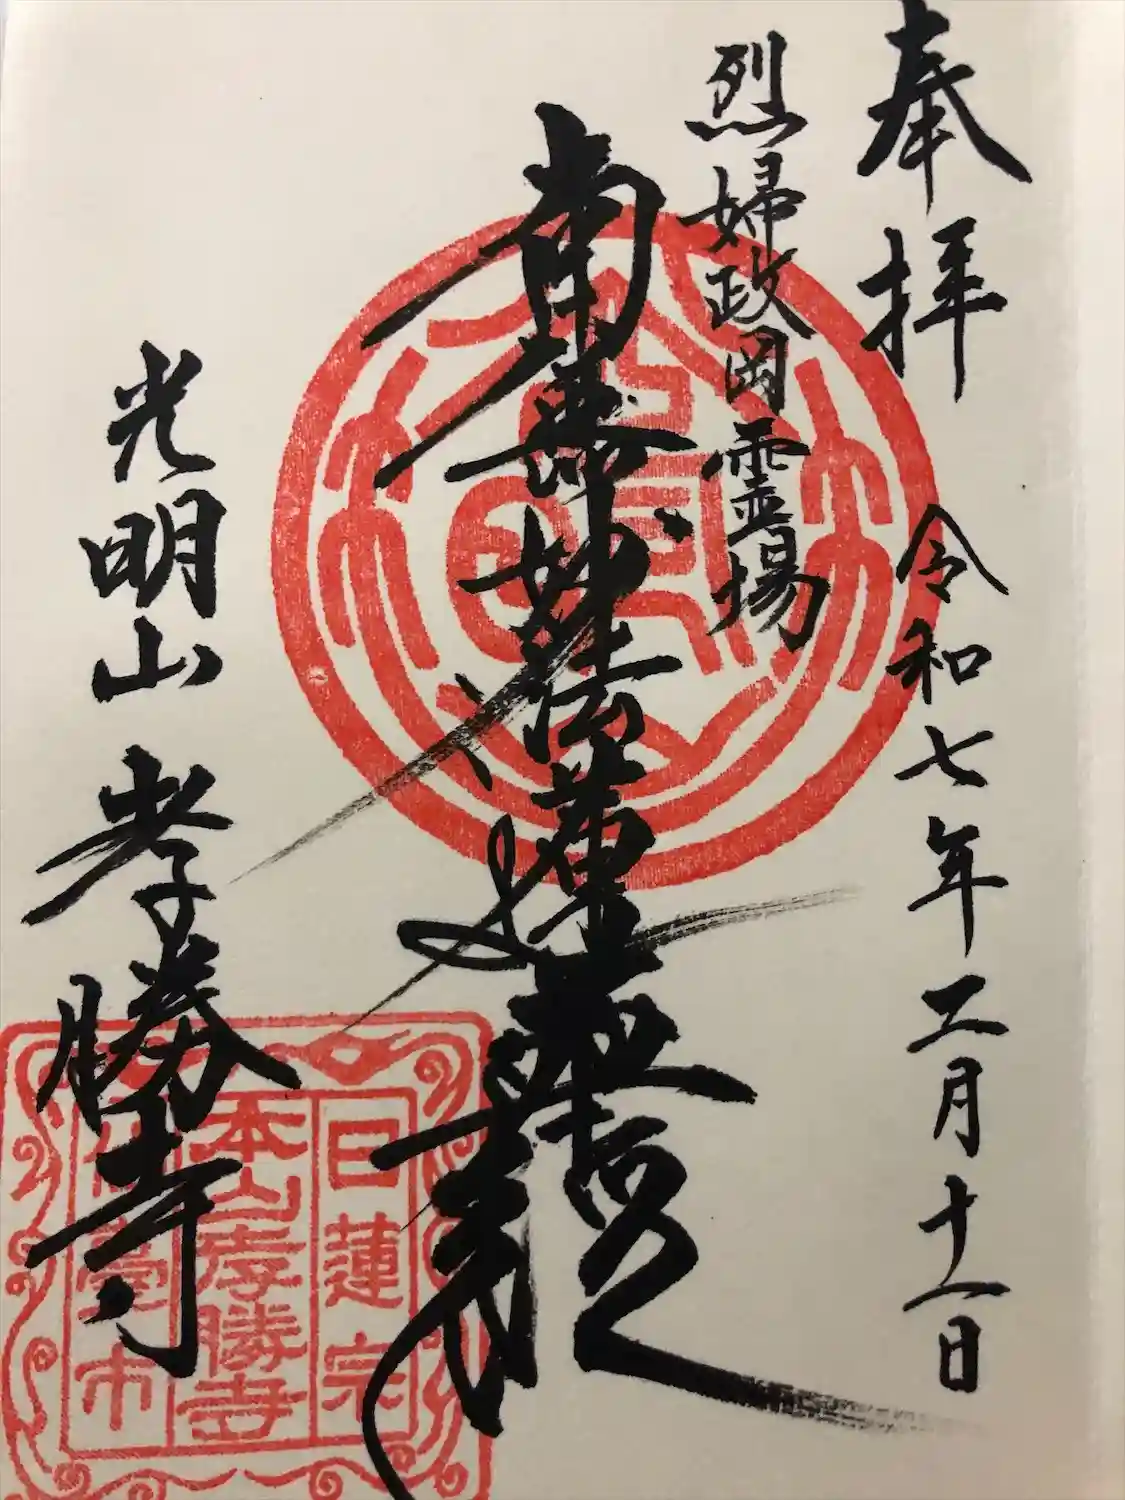 奉拝
令和七年二月十一日
烈婦政岡霊場
南無妙法蓮華経
光明山 孝勝寺
日蓮宗
本山孝勝寺
仙臺市